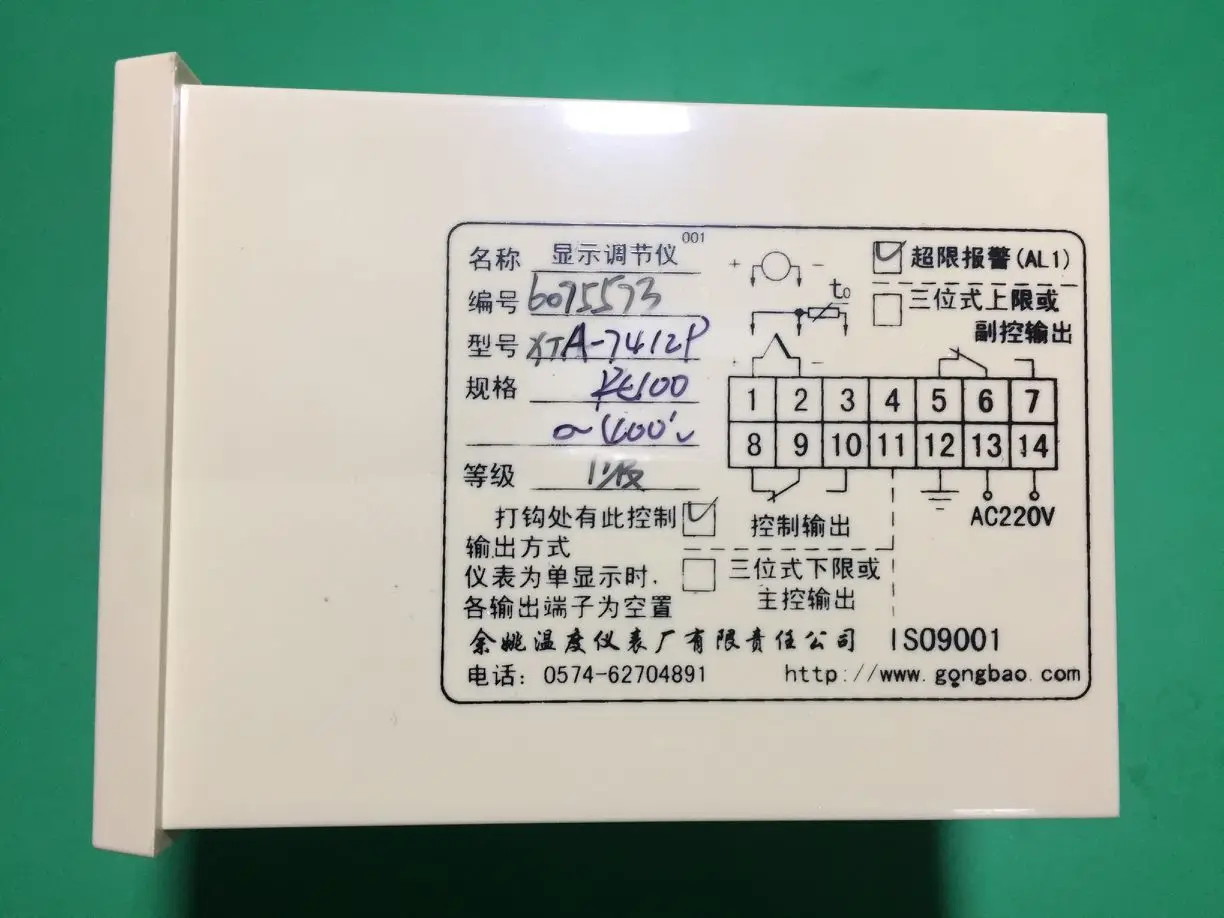 名称 显示调节仪 001
编号 6075573
型号 XTA-7412P
规格 Pt100
0~400℃
等级 1级
打钩处有此控制
输出方式
仪表为单显示时,
各输出端子为空置
+ -
t0
+ -
超限报警(AL1)
三位式上限或
副控输出
1 2 3 4 5 6 7
8 9 10 11 12 13 14
控制输出
AC220V
三位式下限或
主控输出
余姚温度仪表厂有限责任公司 ISO9001
电话: 0574-62704891 http://www.gongbao.com